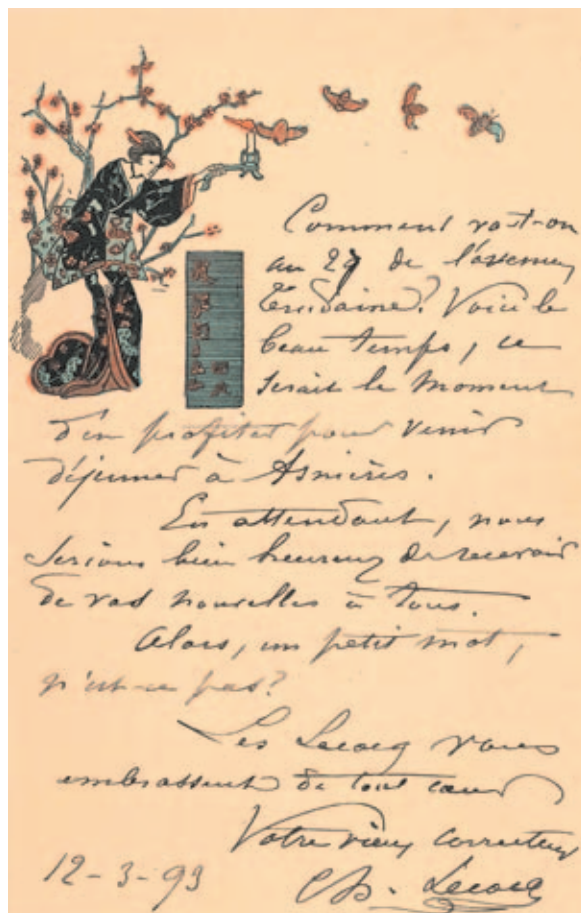 Comment va-t-on
au 29 de l'avenue
Trudaine? Voici le
beau temps, ce
serait le moment
d'en profiter pour venir
déjeuner à Asnières.
En attendant, nous
serions bien heureux de recevoir
de vos nouvelles à tous.
Alors, un petit mot,
n'est-ce pas?
Les Lecocq vous
embrassent de tout cœur
Votre vieux correcteur
Ch. Lecocq
12-3-93